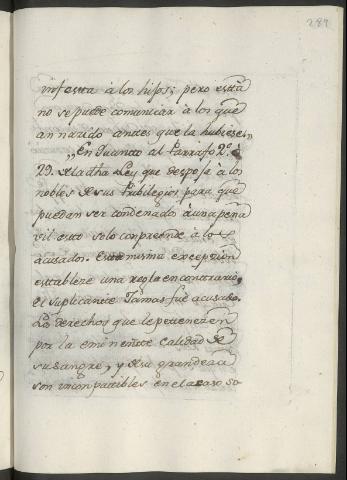 infesta à los hijos; pero esta
no se puede comunicar à los que
an narido antes que la hubiese,,
,,En quanto al Parrafo 2º. è
29. de la dha Ley que despoje à los
nobles de sus Pribilegios para que
puedan ser condenados à una pena
vil esto solo conpreende à los
acusados. Esta misma excepcion
establece una regla en contrario,
el suplicante Jamas fue acusado.
Los derechos que le pertenecen
por la eminente Calidad de
su sangre, y de su grandeza
son incompatibles en el caso so